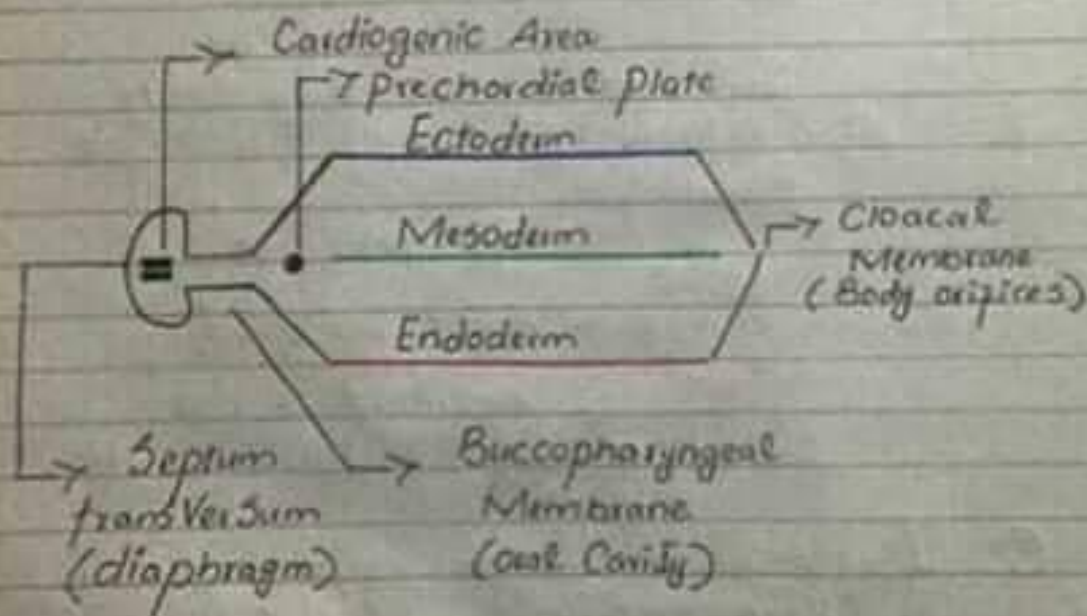 Cardiogenic Area
Prechordial Plate
Ectoderm
Mesoderm
Cloacal
Membrane
(Body orifices)
Endoderm
Septum
transVersum
(diaphragm)
Buccopharyngeal
Membrane
(oral Cavity)